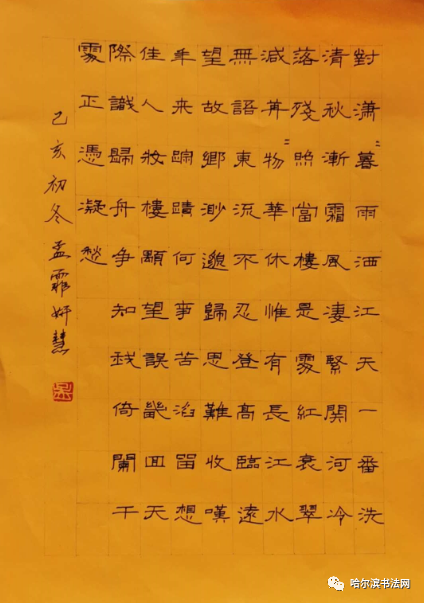 對潇〃暮雨洒江天一番洗
清秋漸霜風凄緊関河冷
落殘照當樓是處紅衰翠
减苒〃物華休惟有長江水
無語東流不忍登高臨遠
望故鄉渺邈歸思難收嘆
年来蹤蹟何事苦淹留想
佳人妝樓顒望誤幾回天
際識歸舟争知我倚闌干
處正憑凝愁
己亥初冬孟霏妍慧
哈尔滨书法网